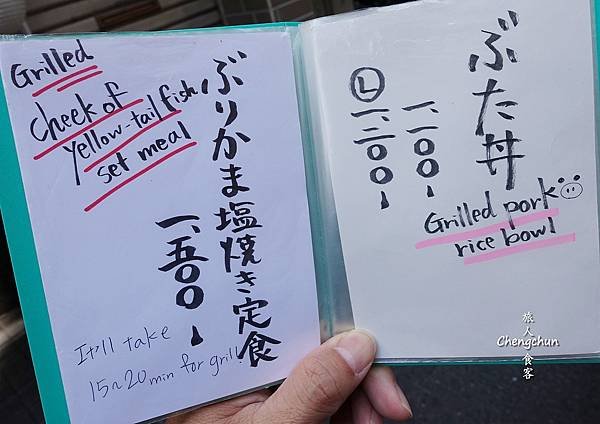 Grilled
cheek of
yellow-tail fish
set meal
ぶりかま塩焼き定食
一、五〇〇
It'll take
15~20 min for grill!
ぶた丼
一、一〇〇
Ⓛ一、二〇〇
Grilled pork
rice bowl
旅人食客
Chengchun